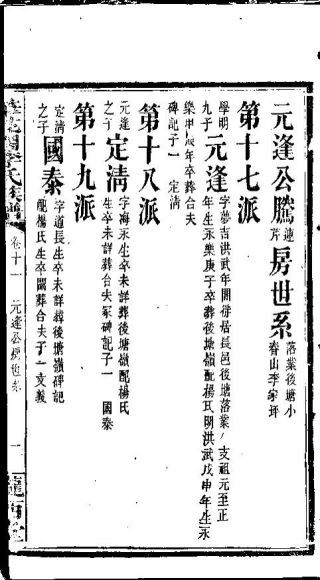 元逢公騰蓮芹房世系 落業後塘小春山李家坪
第十七派
學明九子 元逢 字夢吉洪武年間徙居長邑後塘落業一支祖元至正
年生永樂庚子卒葬後塘嶺配楊氏明洪武戊申年生永
樂甲辰年卒葬合夫
碑記子一 定清
第十八派
元逢之子 定清 字海永生卒未詳葬後塘嶺配楊氏
生卒未詳葬合夫冢碑記子一 國泰
第十九派
定清之子 國泰 字道長生卒未詳葬後塘嶺碑記
配楊氏生卒闕葬合夫子一 支義
李氏族譜
卷十一 元逢公 世系
一